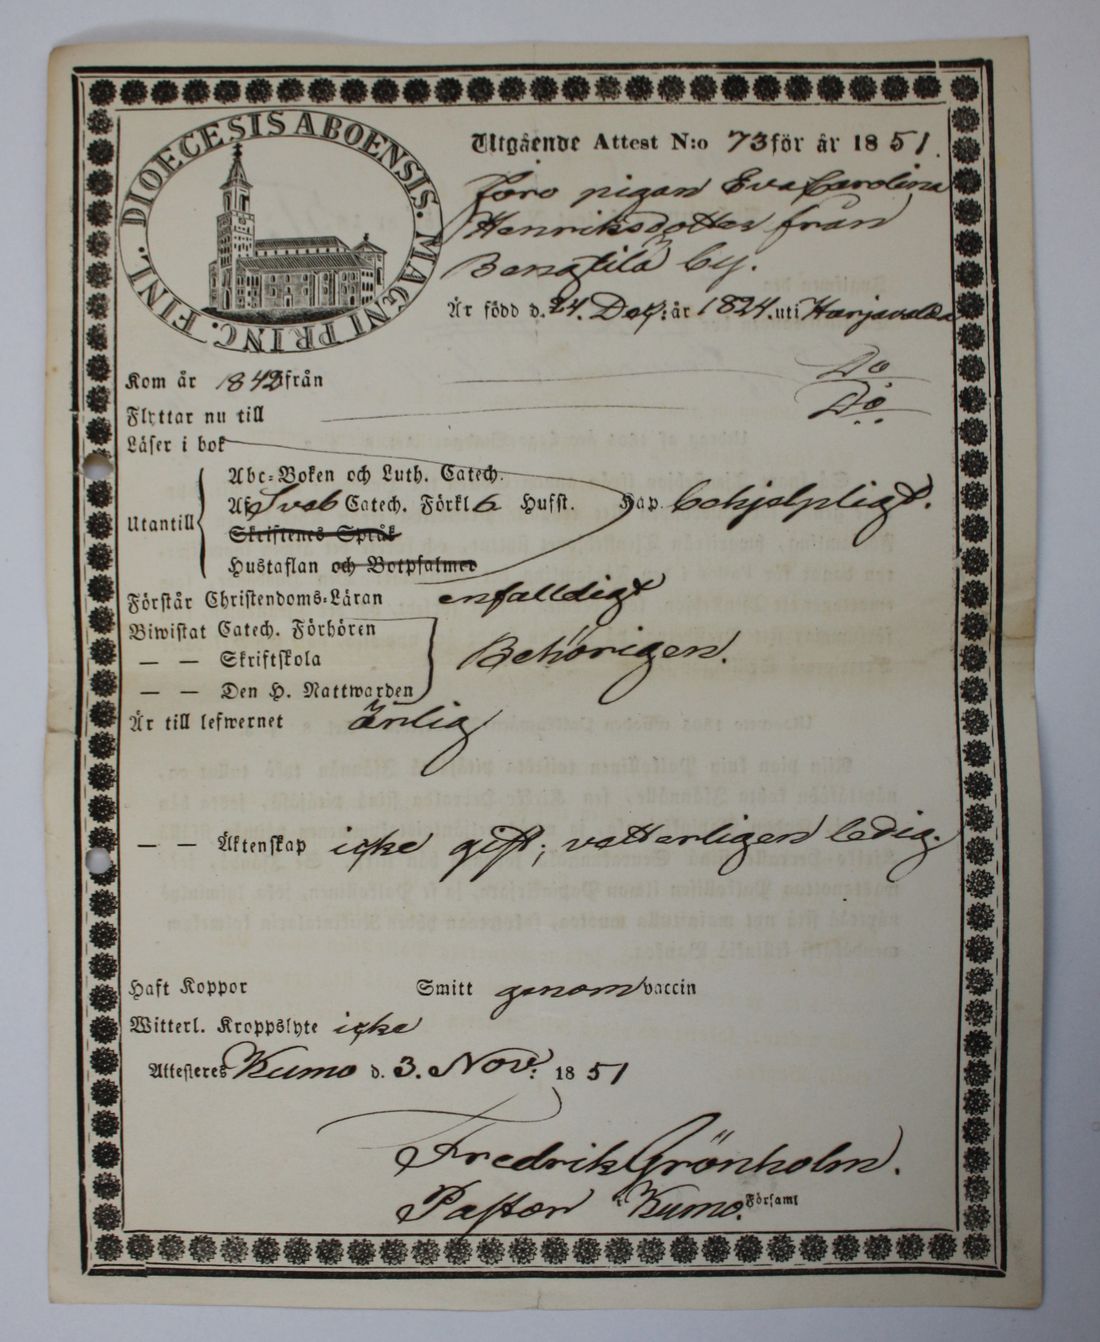 DIOECESIS ABOENSIS. MAGNI PRINC. FINL.
Utgående Attest N:o 73 för år 1851.
före pigan Eva Carolina
Henriksdotter från
Bengtilä by.
Är född d. 24. Dec: år 1824. uti Harjavalda
Kom år 1842 från Do
Flyttar nu till Do
Läser i bok
Utantill
Abc-Boken och Luth. Catech.
Af Sveb Catech. Förkl 6 Hufst. Hap. behjelpligt.
Skriftenes Språk
Hustaflan och Botpsalmer
Förstår Christendoms-Läran enfalldigt
Biwistat Catech. Förhören
— — Skriftskola Behörigen.
— — Den H. Nattwarden
Är till lefwernet Ärlig
— — Äktenskap icke gift; vetterligen ledig.
Haft Koppor Smitt genom vaccin
Witterl. Kroppslyte icke
Attesteres Kumo d. 3. Nov: 1851
Fredrik Grönholm.
Pastor i Kumo Församl